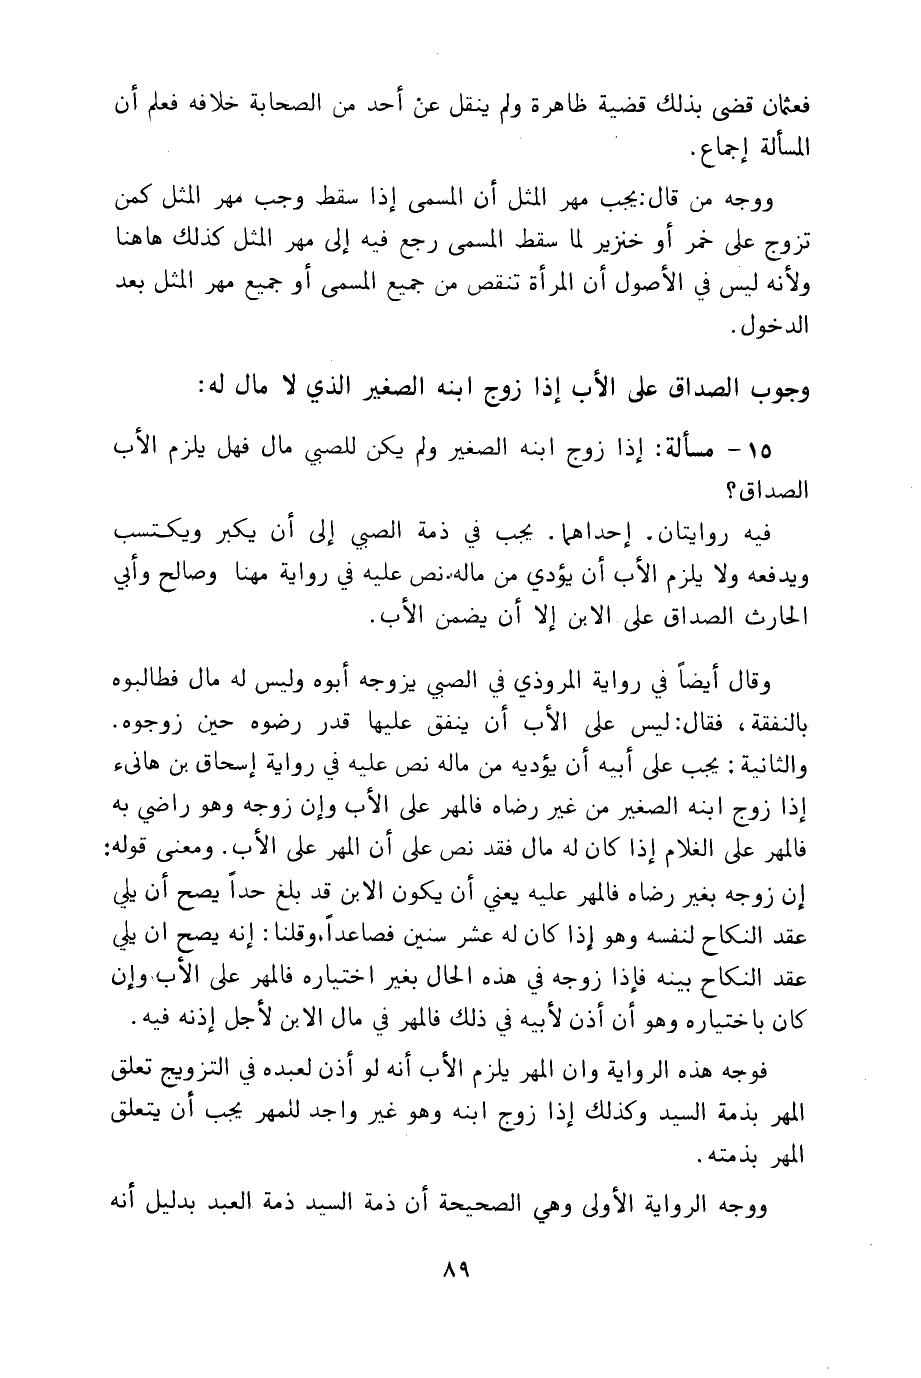 فعثمان قضى بذلك قضية ظاهرة ولم ينقل عن أحد من الصحابة خلافه فعلم أن
المسألة إجماع.
ووجه من قال: يجب مهر المثل أن المسمى إذا سقط وجب مهر المثل كمن
تزوج على خمر أو خنزير لما سقط المسمى رجع فيه إلى مهر المثل كذلك هاهنا
ولأنه ليس في الأصول أن المرأة تنقص من جميع المسمى أو جميع مهر المثل بعد
الدخول.
وجوب الصداق على الأب إذا زوج ابنه الصغير الذي لا مال له:
١٥ - مسألة: إذا زوج ابنه الصغير ولم يكن للصبي مال فهل يلزم الأب
الصداق؟
فيه روايتان. إحداهما. يجب في ذمة الصبي إلى أن يكبر ويكتسب
ويدفعه ولا يلزم الأب أن يؤدي من ماله، نص عليه في رواية مهنا وصالح وأبي
الحارث الصداق على الابن إلا أن يضمن الأب.
وقال أيضاً في رواية المروذي في الصبي يزوجه أبوه وليس له مال فطالبوه
بالنفقة، فقال: ليس على الأب أن ينفق عليها قدر رضوه حين زوجوه.
والثانية: يجب على أبيه أن يؤديه من ماله نص عليه في رواية إسحاق بن هانىء
إذا زوج ابنه الصغير من غير رضاه فالمهر على الأب وإن زوجه وهو راضي به
فالمهر على الغلام إذا كان له مال فقد نص على أن المهر على الأب. ومعنى قوله:
إن زوجه بغير رضاه فالمهر عليه يعني أن يكون الابن قد بلغ حداً يصح أن يلي
عقد النكاح لنفسه وهو إذا كان له عشر سنين فصاعداً، وقلنا: إنه يصح ان يلي
عقد النكاح بينه فإذا زوجه في هذه الحال بغير اختياره فالمهر على الأب، وإن
كان باختياره وهو أن أذن لأبيه في ذلك فالمهر في مال الابن لأجل إذنه فيه.
فوجه هذه الرواية وان المهر يلزم الأب أنه لو أذن لعبده في التزويج تعلق
المهر بذمة السيد وكذلك إذا زوج ابنه وهو غير واجد للمهر يجب أن يتعلق
المهر بذمته.
ووجه الرواية الأولى وهي الصحيحة أن ذمة السيد ذمة العبد بدليل أنه
٨٩